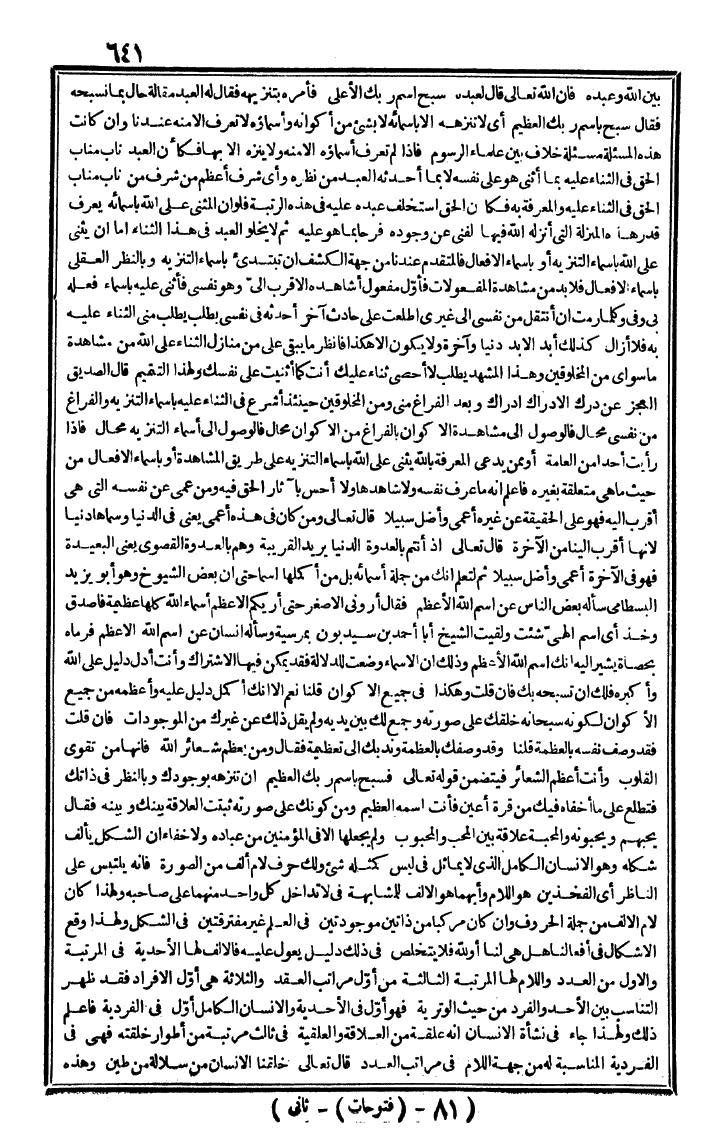 ٦٤١
بين الله وعبده فان الله تعالى قال لعبده سبح اسم ربك الأعلى فأمره بتنزيهه فقال له العبد مقالة حال بما نسبحه
فقال سبح باسم ربك العظيم أى لا تنزهه الا باسمائه لا بشئ من أكوانه وأسماؤه لا تعرف الامنه عندنا وان كانت
هذه المسئلة مسئلة خلاف بين علماء الرسوم فاذا لم تعرف أسماؤه الامنه ولا ينزه الا بها فكأن العبد ناب مناب
الحق فى الثناء عليه بما أثنى هو على نفسه لا بما أحدثه العبد من نظره وأى شرف أعظم من شرف من ناب مناب
الحق فى الثناء عليه والمعرفة به فكأن الحق استخلف عبده عليه فى هذه الرتبة فلوان المثنى على الله باسمائه يعرف
قدر هذه المنزلة التى أنزله الله فيها لفنى عن وجوده فرحا بما هو عليه ثم لا يخلو العبد فى هذا الثناء اما ان يثنى
على الله باسماء التنزيه أو باسماء الافعال فالمتقدم عندنا من جهة الكشف ان تبتدئ باسماء التنزيه وبالنظر العقلى
باسماء الافعال فلابد من مشاهدة المفعولات فأول مفعول أشاهده الاقرب الىّ وهو نفسى فأثنى عليه باسماء فعله
بى وفى وكلما رمت ان أنتقل من نفسى الى غيرى اطلعت على حادث آخر أحدثه فى نفسى يطلب يطلب منى الثناء عليه
به فلا أزال كذلك أبد الابد دنيا وآخرة ولا يكون الا هكذا فانظر ما يبقى على من منازل الثناء على الله من مشاهدة
ما سواى من المخلوقين وهذا المشهد يطلب لا أحصى ثناء عليك أنت كما أثنيت على نفسك ولهذا التتميم قال الصديق
العجز عن درك الادراك ادراك وبعد الفراغ منى ومن المخلوقين حينئذ أشرع فى الثناء عليه باسماء التنزيه والفراغ
من نفسى محال فالوصول الى مشاهدة الاكوان بالفراغ من الاكوان محال فالوصول الى أسماء التنزيه محال فاذا
رأيت أحدا من العامة أو ممن يدعى المعرفة بالله يثنى على الله باسماء التنزيه على طريق المشاهدة أو باسماء الافعال من
حيث ما هى متعلقة بغيره فاعلم انه ما عرف نفسه ولا شاهدها ولا أحس بآثار الحق فيه ومن عمى عن نفسه التى هى
أقرب اليه فهو على الحقيقة عن غيره أعمى وأضل سبيلا قال تعالى ومن كان فى هذه أعمى يعنى فى الدنيا وسماها دنيا
لانها أقرب الينا من الآخرة قال تعالى اذ أنتم بالعدوة الدنيا يريد القريبة وهم بالعدوة القصوى يعنى البعيدة
فهو فى الآخرة أعمى وأضل سبيلا ثم لتعلم انك من جملة أسمائه بل من أكملها اسما حتى ان بعض الشيوخ وهو أبو يزيد
البسطامى سأله بعض الناس عن اسم الله الأعظم فقال أرونى الاصغر حتى أريكم الاعظم أسماء الله كلها عظيمة فاصدق
وخذ أى اسم الهىّ شئت ولقيت الشيخ أبا أحمد بن سيد بون بمرسية وسأله انسان عن اسم الله الاعظم فرماه
بحصاة يشير اليه انك اسم الله الأعظم وذلك ان الاسماء وضعت للدلالة فقد يمكن فيها الاشتراك وأنت أدل دليل على الله
وأكبره فلك ان تسبحه بك فان قلت وهكذا فى جميع الاكوان قلنا نعم الا انك أكمل دليل عليه وأعظمه من جميع
الأكوان لكونه سبحانه خلقك على صورته وجمع لك بين يديه ولم يقل ذلك عن غيرك من الموجودات فان قلت
فقد وصف نفسه بالعظمة قلنا وقد وصفك بالعظمة وندبك الى تعظيمة فقال ومن يعظم شعائر الله فانها من تقوى
القلوب وأنت أعظم الشعائر فيتضمن قوله تعالى فسبح باسم ربك العظيم ان تنزهه بوجودك وبالنظر فى ذاتك
فتطلع على ما أخفاه فيك من قرة أعين فأنت اسمه العظيم ومن كونك على صورته ثبتت العلاقة بينك وبينه فقال
يحبهم ويحبونه والمحبة علاقة بين المحب والمحبوب ولم يجعلها الا فى المؤمنين من عباده ولا خفاء ان الشكل يألف
شكله وهو الانسان الكامل الذى لا يماثل فى ليس كمثله شئ ولك حرف لام ألف من الصورة فانه يلتبس على
الناظر أى الفخذين هو اللام وأيهما هو الالف للمشابهة فى لا تداخل كل واحد منهما على صاحبه ولهذا كان
لام الالف من جملة الحروف وان كان مركبا من ذاتين موجودتين فى العلم غير مفترقتين فى الشكل ولهذا وقع
الاشكال فى أفعالنا هل هى لنا أو لله فلا يتخلص فى ذلك دليل يعول عليه فالالف لها الأحدية فى المرتبة
والاول من العدد واللام لها المرتبة الثالثة من أول مراتب العقد والثلاثة هى أول الافراد فقد ظهر
التناسب بين الأحد والفرد من حيث الوترية فهو أول فى الأحدية والانسان الكامل أول فى الفردية فاعلم
ذلك ولهذا جاء فى نشأة الانسان انه علقة من العلاقة والعلقية فى ثالث مرتبة من أطوار خلقته فهى فى
الفردية المناسبة له من جهة اللام فى مراتب العدد قال تعالى خلقنا الانسان من سلالة من طين وهذه
( ٨١ - (فتوحات) - ثانى )